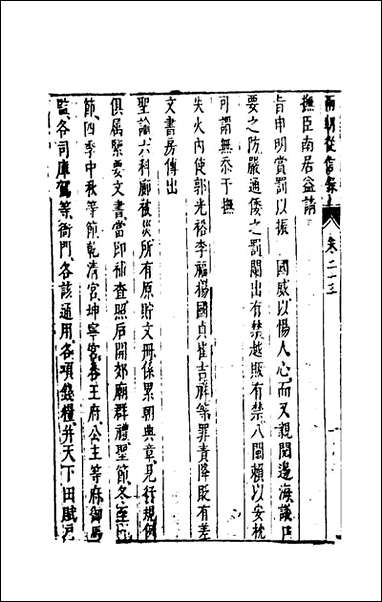 兩朝從信錄 卷二十三
撫臣南居益請
旨申明賞罰以振 國威以惕人心而又親閱邊海議戶
要之防嚴通倭之罰闌出有禁越販有禁八閩賴以安枕
可謂無忝于撫
失火內使郭光裕李福楊國貞崔吉祥等罪責降貶有差
文書房傳出
聖諭六科廊被災所有原貯文冊係累朝典章見行規例
俱屬緊要文書當即抽查照后開郊廟群禮聖節冬至
節四季中秋等節乾清宮坤寧宮春王府公主等府御馬
監各司庫駕等衙門各該通用各項錢糧并天下田賦戶